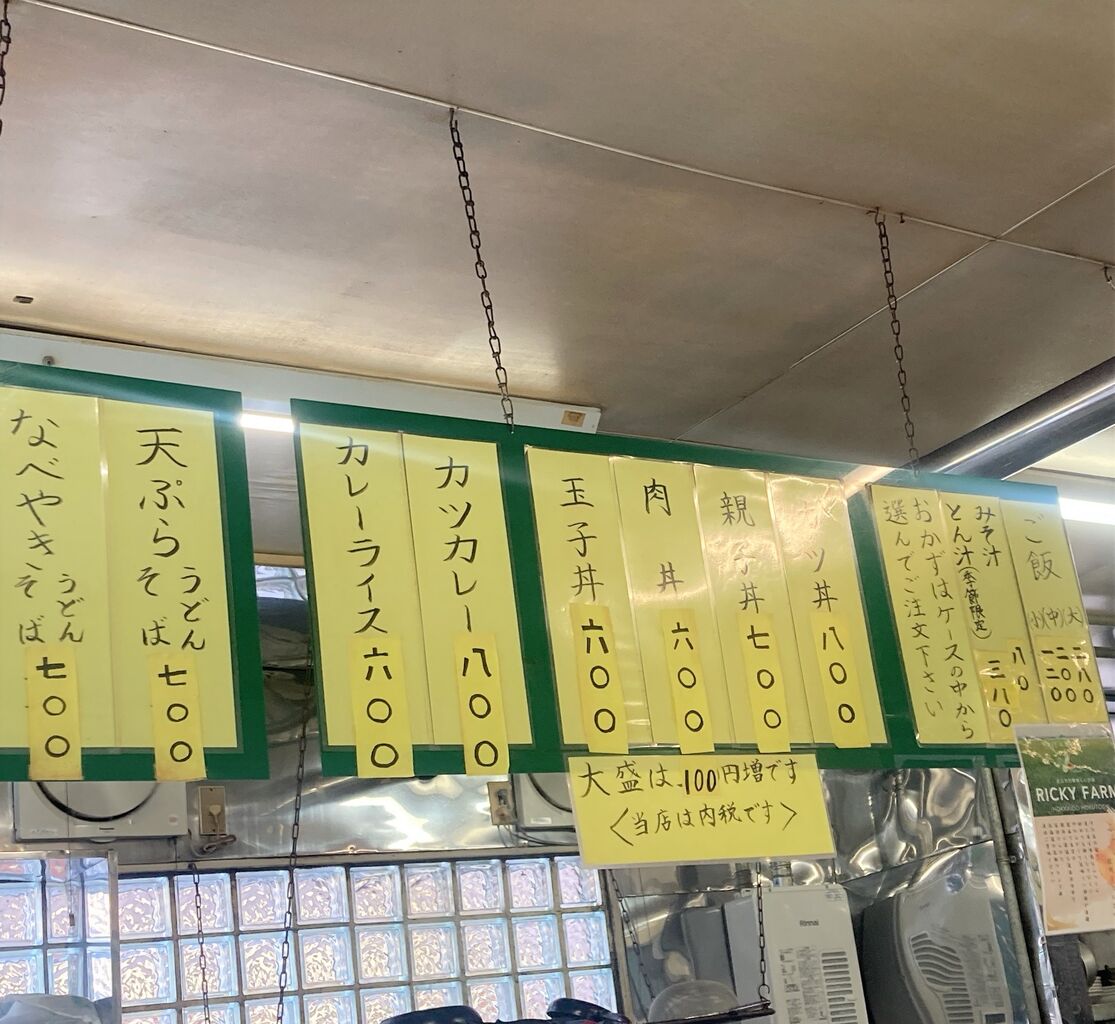 ご飯
大
中
小
みそ汁 八〇
とん汁(季節限定) 三八〇
おかずはケースの中から
選んでご注文下さい
カツ丼 八〇〇
親子丼 七〇〇
肉丼 六〇〇
玉子丼 六〇〇
カツカレー 八〇〇
カレーライス 六〇〇
天ぷら うどん そば 七〇〇
なべやき うどん そば 七〇〇
大盛は、100円増です
〈当店は内税です〉
RICKY FARM
Rinnai